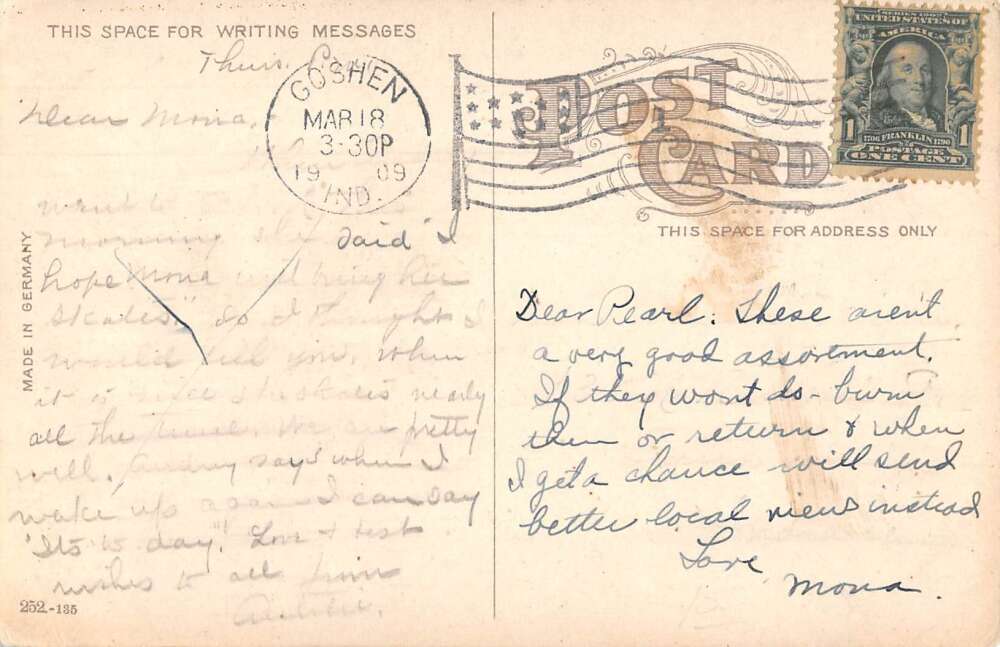 THIS SPACE FOR WRITING MESSAGES
Thurs.
Dear Mona,
went to
morning she said "I
hope Mona will bring her
skates". So I thought I
would tell you. When
it is she skates nearly
all the time. We are pretty
well. Audrey says "when I
wake up again I can say
'Its to day'." Love & best
wishes to all from
MADE IN GERMANY
252.-135
GOSHEN
MAR 18
3-30P
1909
IND.
POST CARD
SERIES 1902
UNITED STATES OF
AMERICA
1 1706 FRANKLIN 1790 1
POSTAGE
ONE CENT
THIS SPACE FOR ADDRESS ONLY
Dear Pearl: These aren't
a very good assortment.
If they wont do - burn
them or return & when
I get a chance will send
better local views instead
Love
Mona.